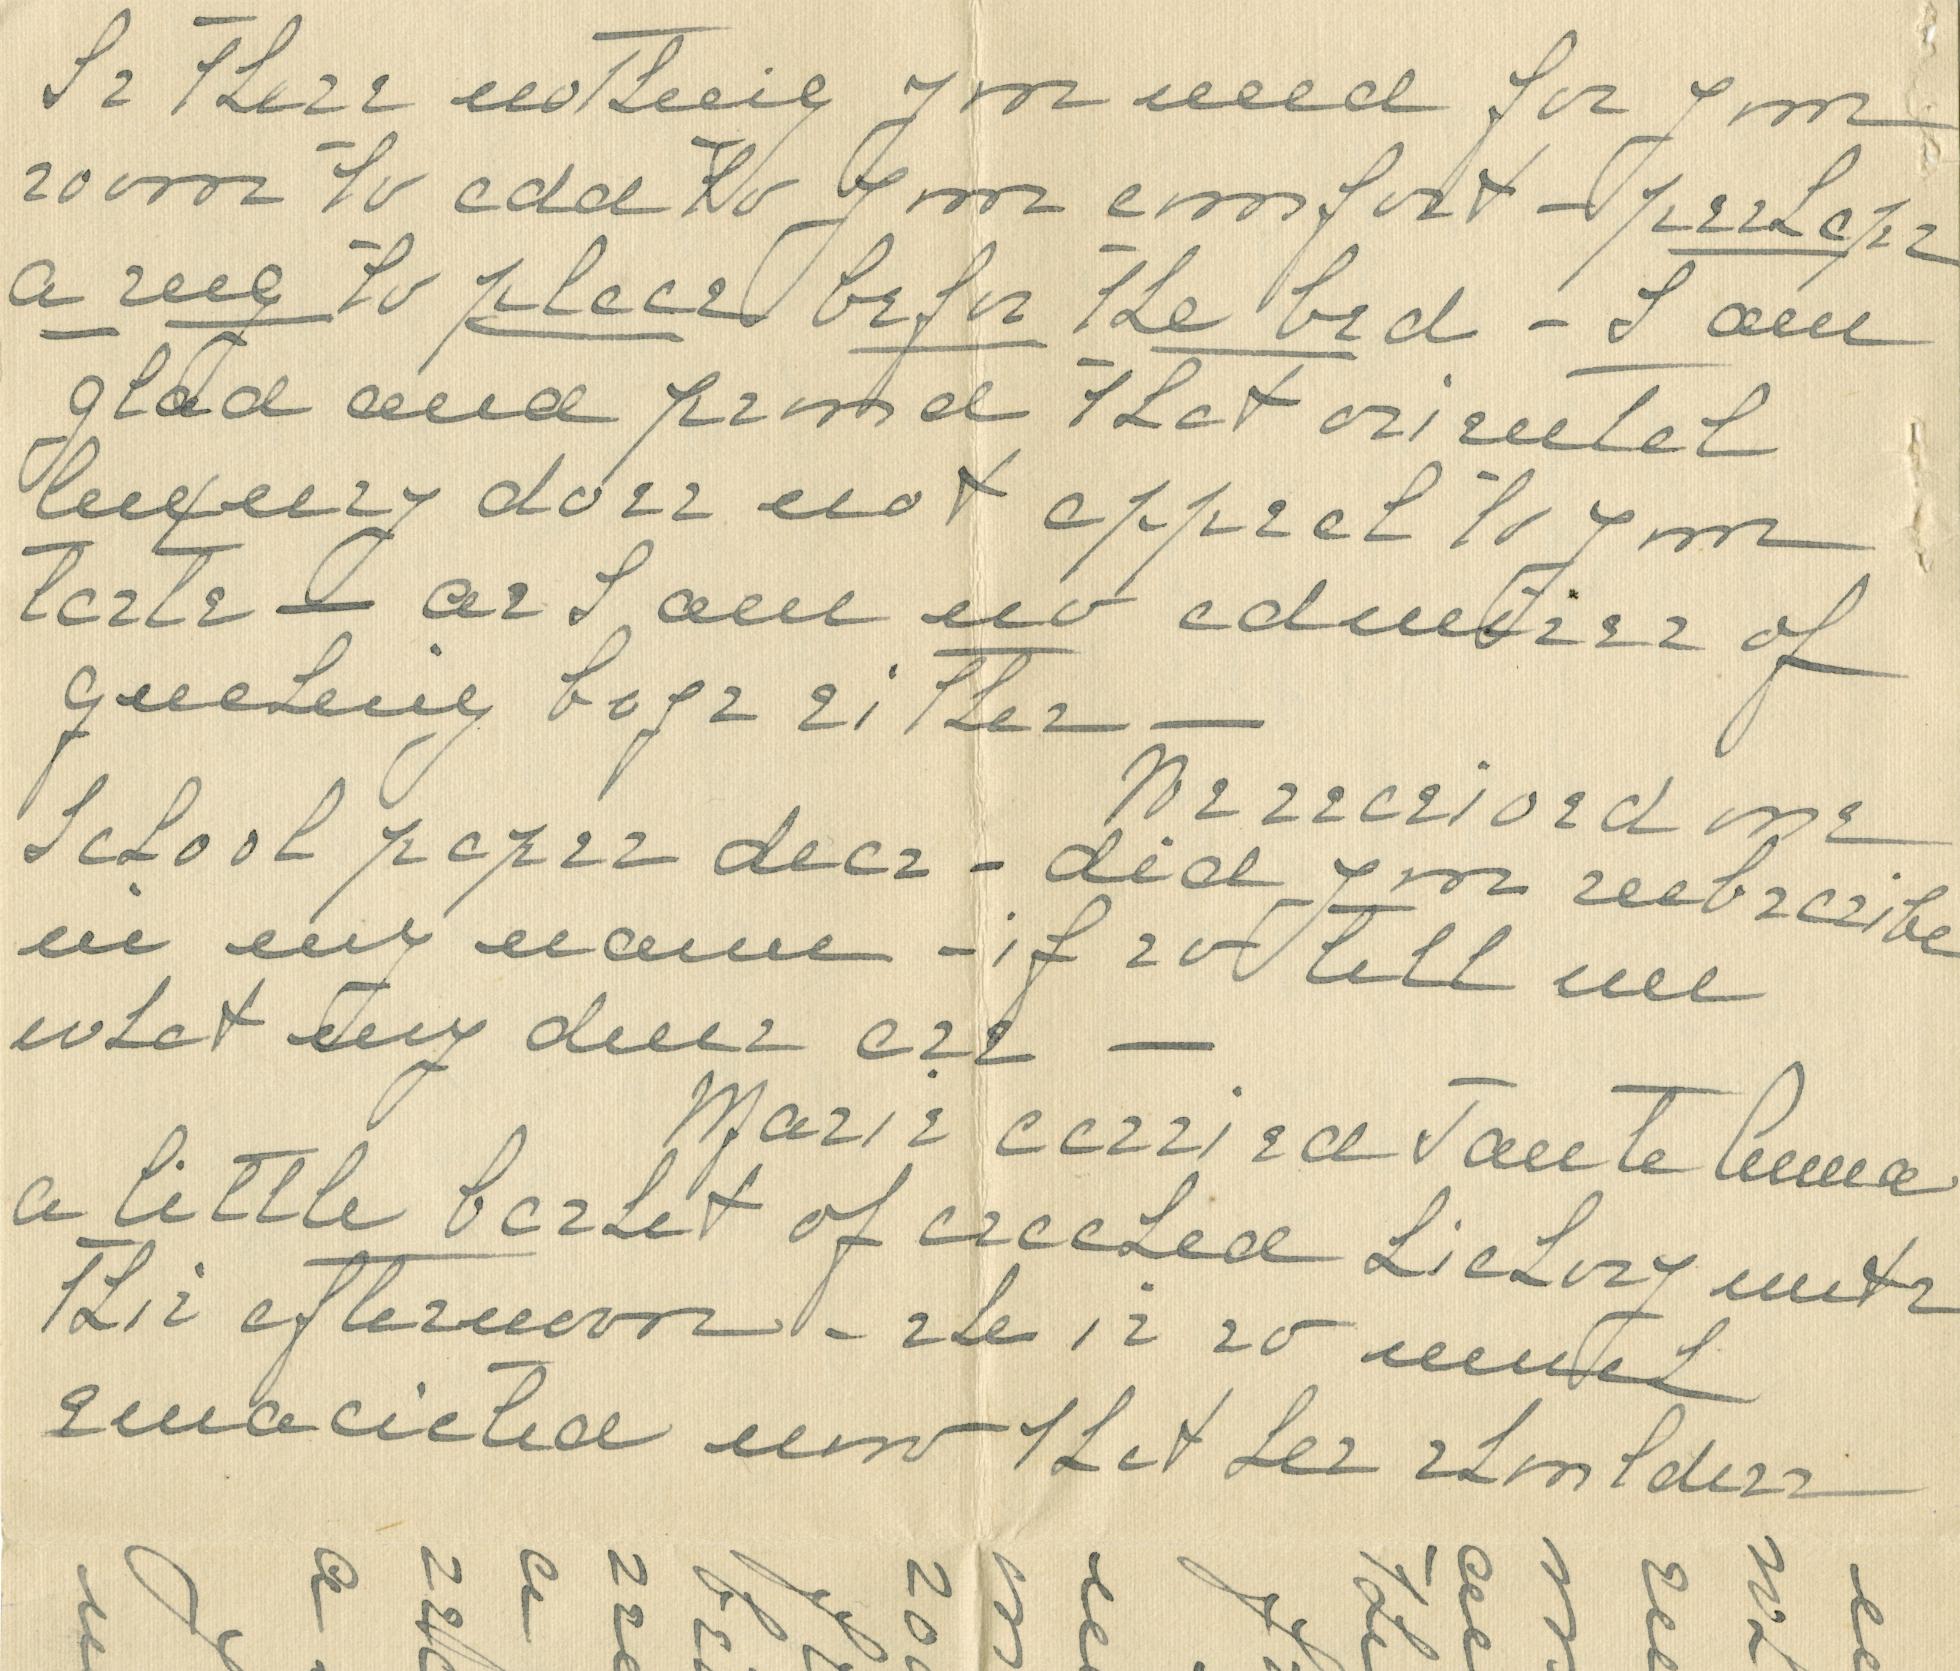 Is there nothing you need for your
room to add to your comfort - perhaps
a rug to place befor the bed - I am
glad and proud that oriental
luxury does not appeal to your
taste - as I am no admirer of
gueling boys either -
We received one
School paper dear - did you subscribe
in my name - if so tell me
what my dues are -
Marie carried Tante Emma
a little basket of cracked hickory nuts
this afternoon - she is so much
emaciated now that her shoulders